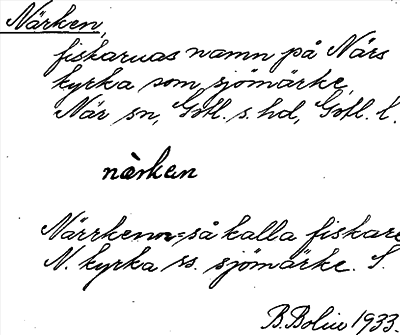 Närken,
fiskarnas namn på Närs
kyrka som sjömärke,
När sn, Gotl. s. hd, Gotl. l.
närken
Närrkenn - så kalla fiskare
N. kyrka ss. sjömärke. S.
B. Bolin 1933.